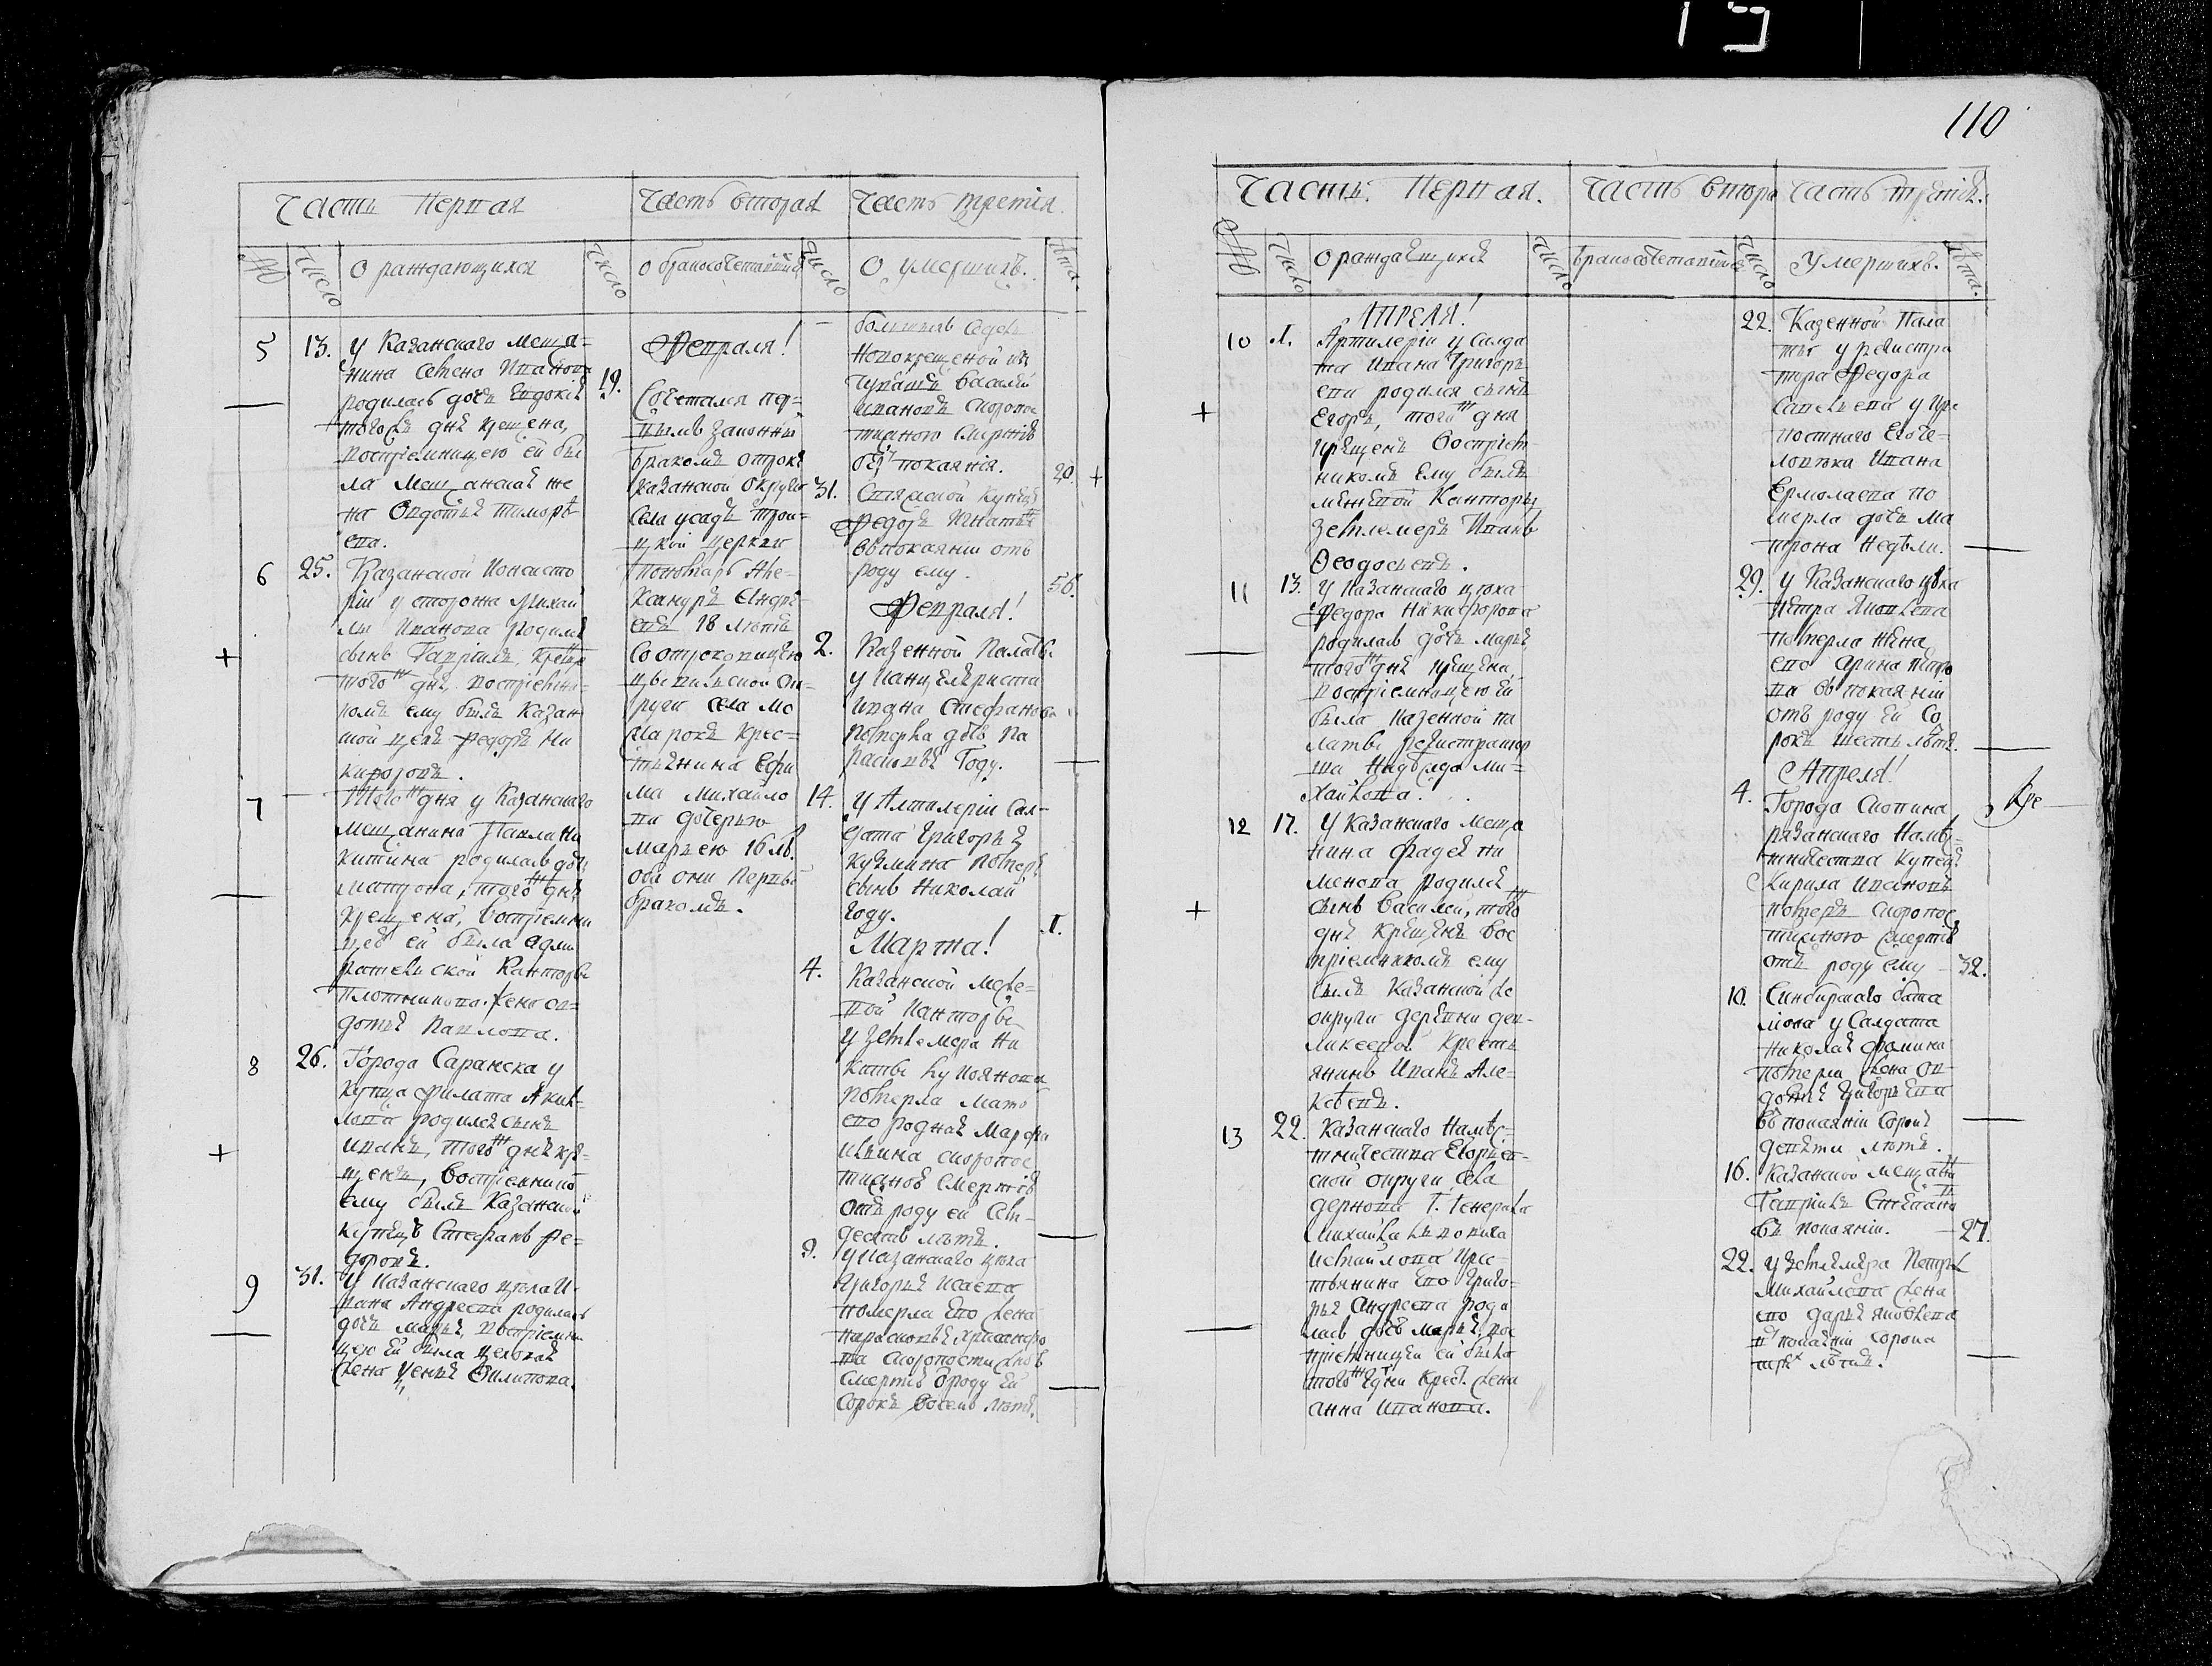 110
Часть Первая
Часть вторая
Часть третія
Число
О раждающихся
Число
о бракосочетавшихся
Число
О умершихъ.
лѣта.
5
13. у Казанскаго меща=
нина Семена Иванова
родилась дочь Евдокія
тогожъ дня крещена,
воспріемницею ей бы
ла мещанская же
на Авдотья Тимофѣ
ева.
6
25. Казанской Консисто
ріи у сторожа Михай
лы Иванова родился
сынъ Гавріилъ, крещенъ
тогожъ дня воспріемни=
комъ ему былъ Казан
ской цехъ Федоръ Ни
кифоровъ.
7
Тогожъ дня у Казанскаго
мещанина Павла Ни
китина родилась дочь
Матрона, тогожъ дня
крещена, воспріемни
цею ей была адми
ратейской Канторы
плотникова жена ов=
дотья Павлова.
8
26. Города Саранска у
купца Филата Яков
лева родился сынъ
Иванъ, тогожъ дня кре=
щенъ, воспріемникомъ
ему былъ Казанской
купецъ Стефанъ Фе=
доровъ.
9
31. У Казанскаго цеха И
вана Андреева родилась
дочь Марья, воспріемни
цею ей была цеховая
жена Ксенья Филипова.
Февраля!
19.
Сочетался пер=
вымъ законнымъ
бракомъ отрокъ
казанской округи
села усадъ трои=
цкой церкви
пономарь Але=
ксандръ Андре
евъ 18 лѣтъ
со отроковицею
цывильской ок=
руги села мо
крестьянина Ефи
ма Михайло
ва дочерью
Марьею 16 лѣ.
оба они первымъ
бракомъ.
новокрещеной изъ
чувашъ Василей
Ивановъ скоропос
тижною смертію
безъ покаянія.
20.
31. Свіяжской купецъ
Федоръ Игнатьевъ
въ покаяніи отъ
роду ему.
56.
Февраля!
2. Казенной Палаты
у Канцеляриста
Ивана Стефанова
померла дочь Па
расковья Году.
14. у Артилеріи сал=
дата Григорья
Кузмина померъ
сынъ Николай
году.
1.
Марта!
4. Казанской меже=
вой Канторы
у землемера Ни
киты Лукоянова
померла мать
его родная Марфа
Ильина скоропос
тижною смертію
отъ роду ей Сем=
десять лѣтъ.
9. у Казанскаго цеха
Григорья Исаева
померла его жена
Парасковья Александро
ва скоропостижною
смертію отроду ей
сорокъ восемь лѣтъ.
Часть Первая.
Часть втора
Часть третія.
Число
О раждающихся
Число
бракосочетавшихся
Число
Умершихъ.
лѣта.
АПРЕЛЯ!
10
1. Артилеріи у салда
та Ивана Григорь
ева родился сынъ
Егоръ, тогожъ дня
крещенъ воспріем
никомъ ему былъ
межевой Канторы
землемеръ Иванъ
Феодосьевъ.
11
13. у Казанскаго цеха
Федора Никифорова
родилась дочь Марья,
тогожъ дня крещена,
воспріемницею ей
была казенной па
латы регистратор
ша Надежда Ми=
хайлова.
12
17. У Казанскаго меща
нина Фадея Пи
менова родился
сынъ Василей, тогожъ
дня крещенъ вос
пріемникомъ ему
былъ Казанской же
округи деревни
кресть
янинъ Иванъ Але=
ксеевъ.
13
22. Казанскаго Намѣс=
тничества
ской округи села
Г. Генерала
Михайла
Измайлова кре=
стьянина его Григо=
рья Андреева роди
лась дочь Марья, вос
пріемницей ей была
крест. жена
анна Иванова.
22. Казенной Пала
ты у регистра
тора Федора
Савельева у кре
постнаго его че=
ловека Ивана
Ермолаева по
мерла дочь Ма
трона недѣли.
29. у Казанскаго цеха
Петра Яковлева
померла жена
его Арина Петро
ва въ покаяніи
отъ роду ей со
рокъ шесть лѣтъ.
Апреля!
4. Города Скопина
рязанскаго Намѣс=
тничества купецъ
Кирила Ивановъ
померъ скоропос
тижною смертію
отъ роду ему — 32.
10. Синбирскаго бата
ліона у салдата
Николая Фомина
померла жена ов
дотья Григорьева
въ покаяніи сорокъ
девяти лѣтъ.
16. Казанской мещанинъ
Гаврила Степановъ
въ покаяніи. — 27.
22. у землемера Петра
Михайлова жена
его Дарья Яковлева
въ покаяніи сорока
трехъ лѣтъ.